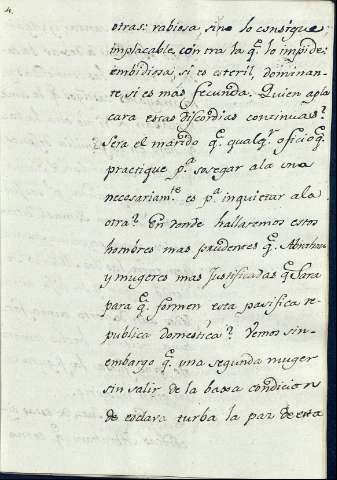 otras: rabiosa sino lo consigue
implacable, contra la q.e lo impide:
embidiosa, si es esteril, dominan-
te, si es mas fecunda. Quien apla
cara estas discordias continuas?
Sera el marido q.e qualq.r oficio q.e
practique p.a sosegar ala una
necesariam.te es p.a inquietar ala
otra? En donde hallaremos estos
hombres mas prudentes q.e Abraham
y mugeres mas Justificadas q.e Sara
para q.e formen esta pasifica re-
publica domestica? Vemos sin-
embargo q.e una segunda muger
sin salir de la baxa condicion
de esclava turba la paz de esta